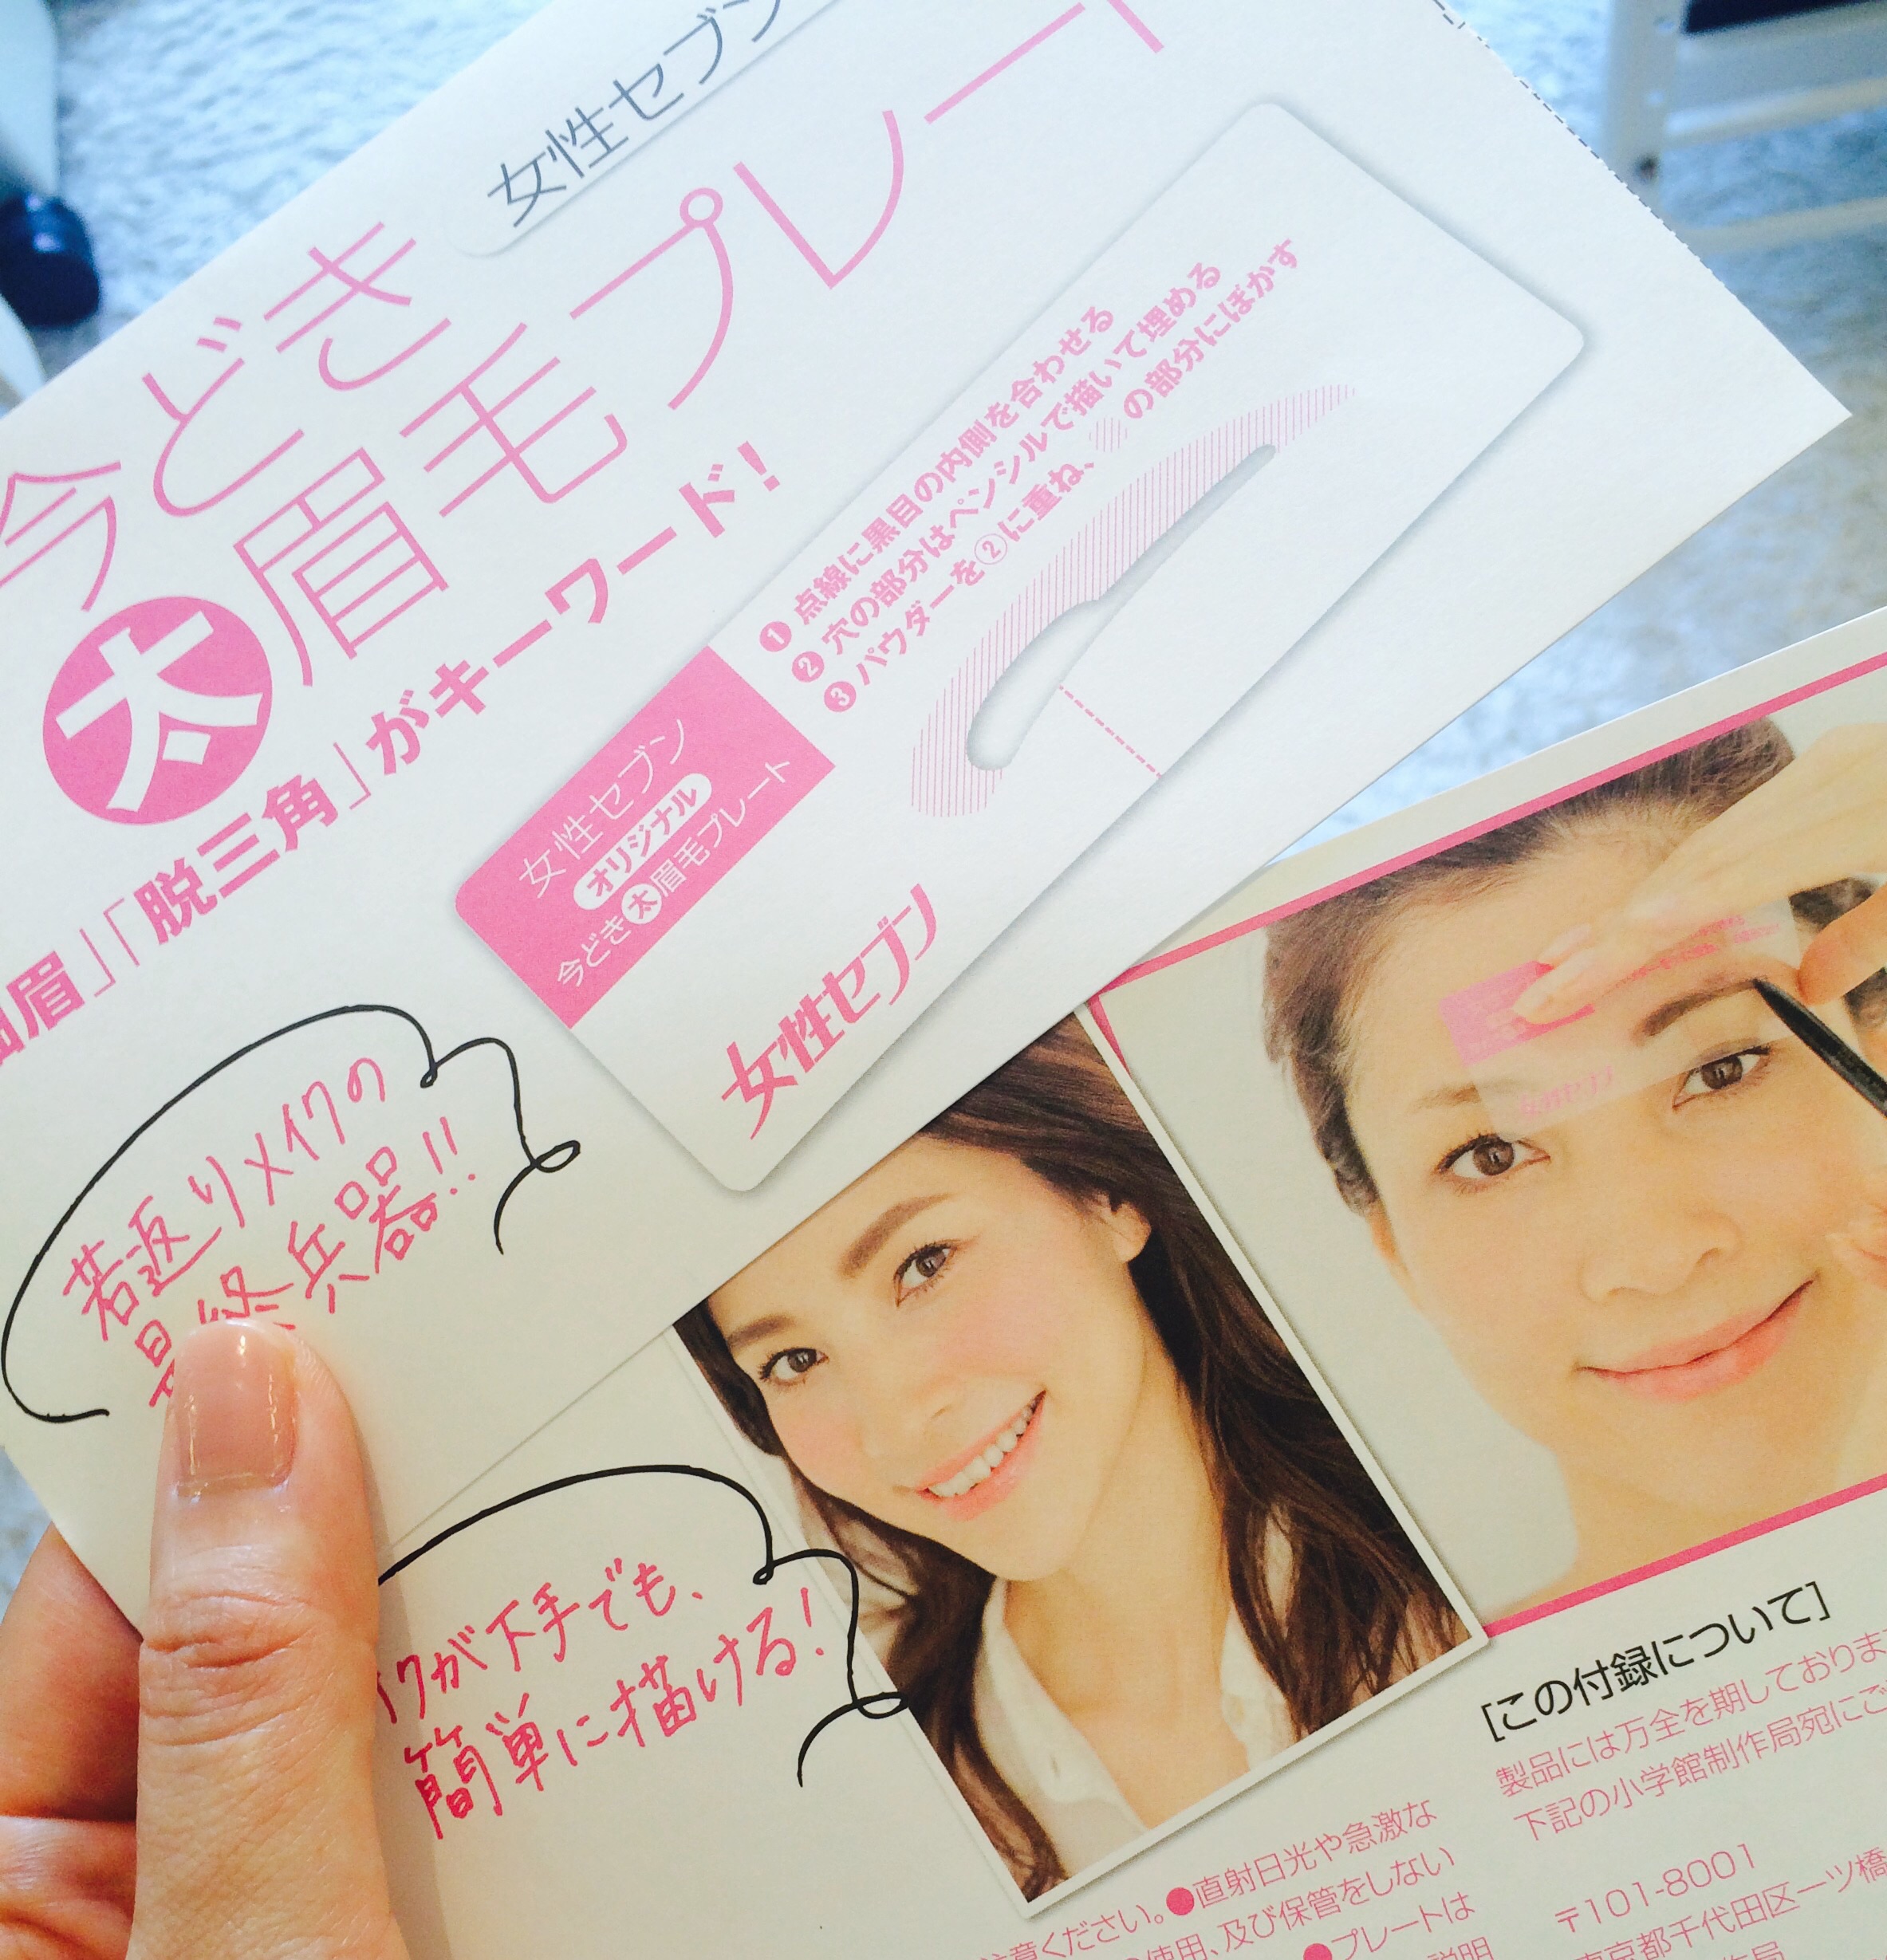 女性セブン
今どき
太眉毛プレート
眉」「脱三角」がキーワード!
❶ 点線に黒目の内側を合わせる
❷ 穴の部分はペンシルで描いて埋める
❸ パウダーを②に重ね、の部分にぼかす
女性セブン
オリジナル
今どき太眉毛プレート
女性セブン
若返りメイクの
最終兵器!!
イクが下手でも、
簡単に描ける!
女性セブン
[この付録について]
製品には万全を期しておりま
下記の小学館制作局宛にご
〒101-8001
東京都千代田区一ツ橋
注意ください。●直射日光や急激な
使用、及び保管をしない
●プレートは
説明